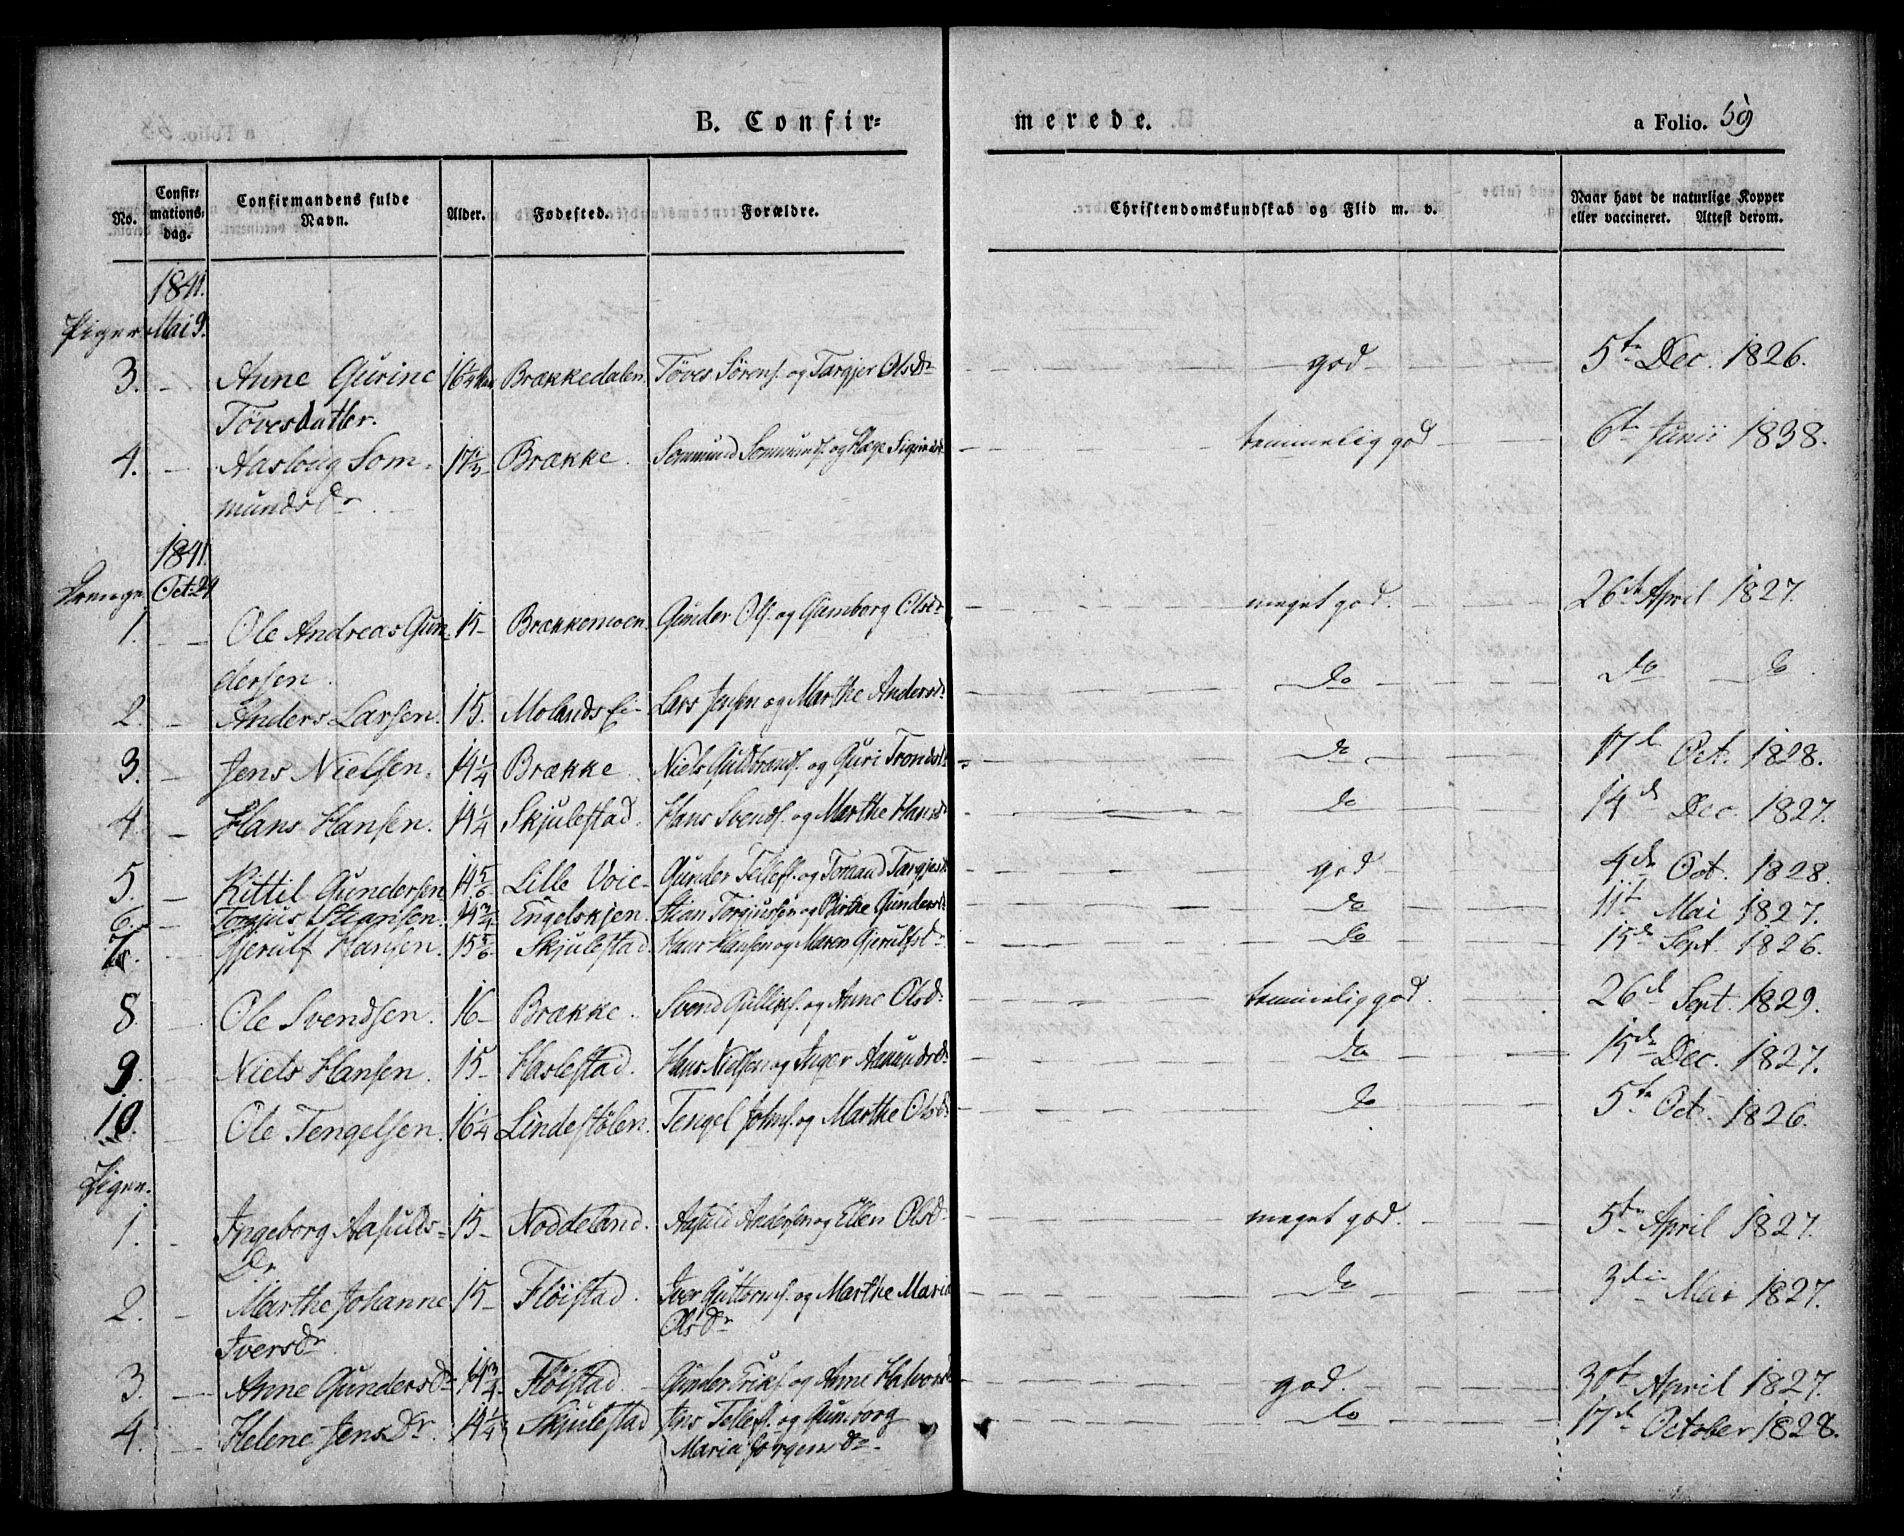 B. Confir=
merede.
a Folio. 59
No.
Confir=
mations=
dag.
Confirmandens fulde
Navn.
Alder.
Fødested.
Forældre.
Christendomskundskab og Flid m. v.
Naar havt de naturlige Kopper
eller vaccineret. Attest derom.
1841.
Piger Mai 9.
3. - Anne Gurine 16 1/4 Brækkedalen Töves Sörens. og Targjer Olsdr god 5te Dec. 1826.
Tövesdatter.
4. - Aasloug Som= 17 1/3 Brække. Sommund Sommunds. og temmelig god 6te Junii 1838.
mundsdr
1841.
Drenge Oct. 24
1. - Ole Andreas Gun= 15 - Brækkemoen. Gunder Ols. og Gumborg Olsdr meget god. 26de April 1827.
dersen.
2. - Anders Larsen. 15. Molands Ei- Lars Jensen og Marthe Andersdr do do do
3. - Jens Nielsen. 14 1/4 Brække Niels Guldbrands. og Guri Trondsdr do 17de Oct. 1828.
4. - Hans Hansen. 14 1/4 Skjulestad. Hans Svends. og Marthe Hansdr do 14de Dec. 1827.
5. - Kittil Gundersen 14 5/6 Lille Voie- Gunder Tellefs. og Tomand god 4de Oct. 1828.
6. - Torgjus Stiansen. 14 3/4 Engelskjen. Stian Torgjussen og Birthe Gundersdr do 11te Mai 1827.
7. - Gjerulf Hansen. 15 5/6 Skjulestad. Hans Hansen og Maren Gjerulfsdr do 15de Sept. 1826.
8 - Ole Svendsen. 16 - Brække. Svend Gulliks. og Anne Olsdr temmelig god. 26de Sept. 1829.
9. - Niels Hansen. 15 - Haslestad. Hans Nielsen og Inger Aanundsdr do 15de Dec. 1827.
10. - Ole Tengelsen. 16 1/4 Lindestölen. Tengel Johns. og Marthe Olsdr do 5te Oct. 1826.
Piger.
1. - Ingeborg Aasulds= 15 - Noddeland. Aasuld Andersen og Ellen Olsdr meget god. 5te April 1827.
Dr
2. - Marthe Johanne 15 - Flöistad. Iver Guttorms. og Marthe Maria do 3die Mai 1827.
Iversdr Olsdr
3. - Anne Gundersdr 14 3/4 Flöistad. Gunder Eriks. og Anne Halvorsdr god. 30te April 1827.
4. - Helene Jensdr. 14 1/4 Skjulestad Jens Tellefs. og Gunborg do 17de October 1828.
Maria Jörgensdr